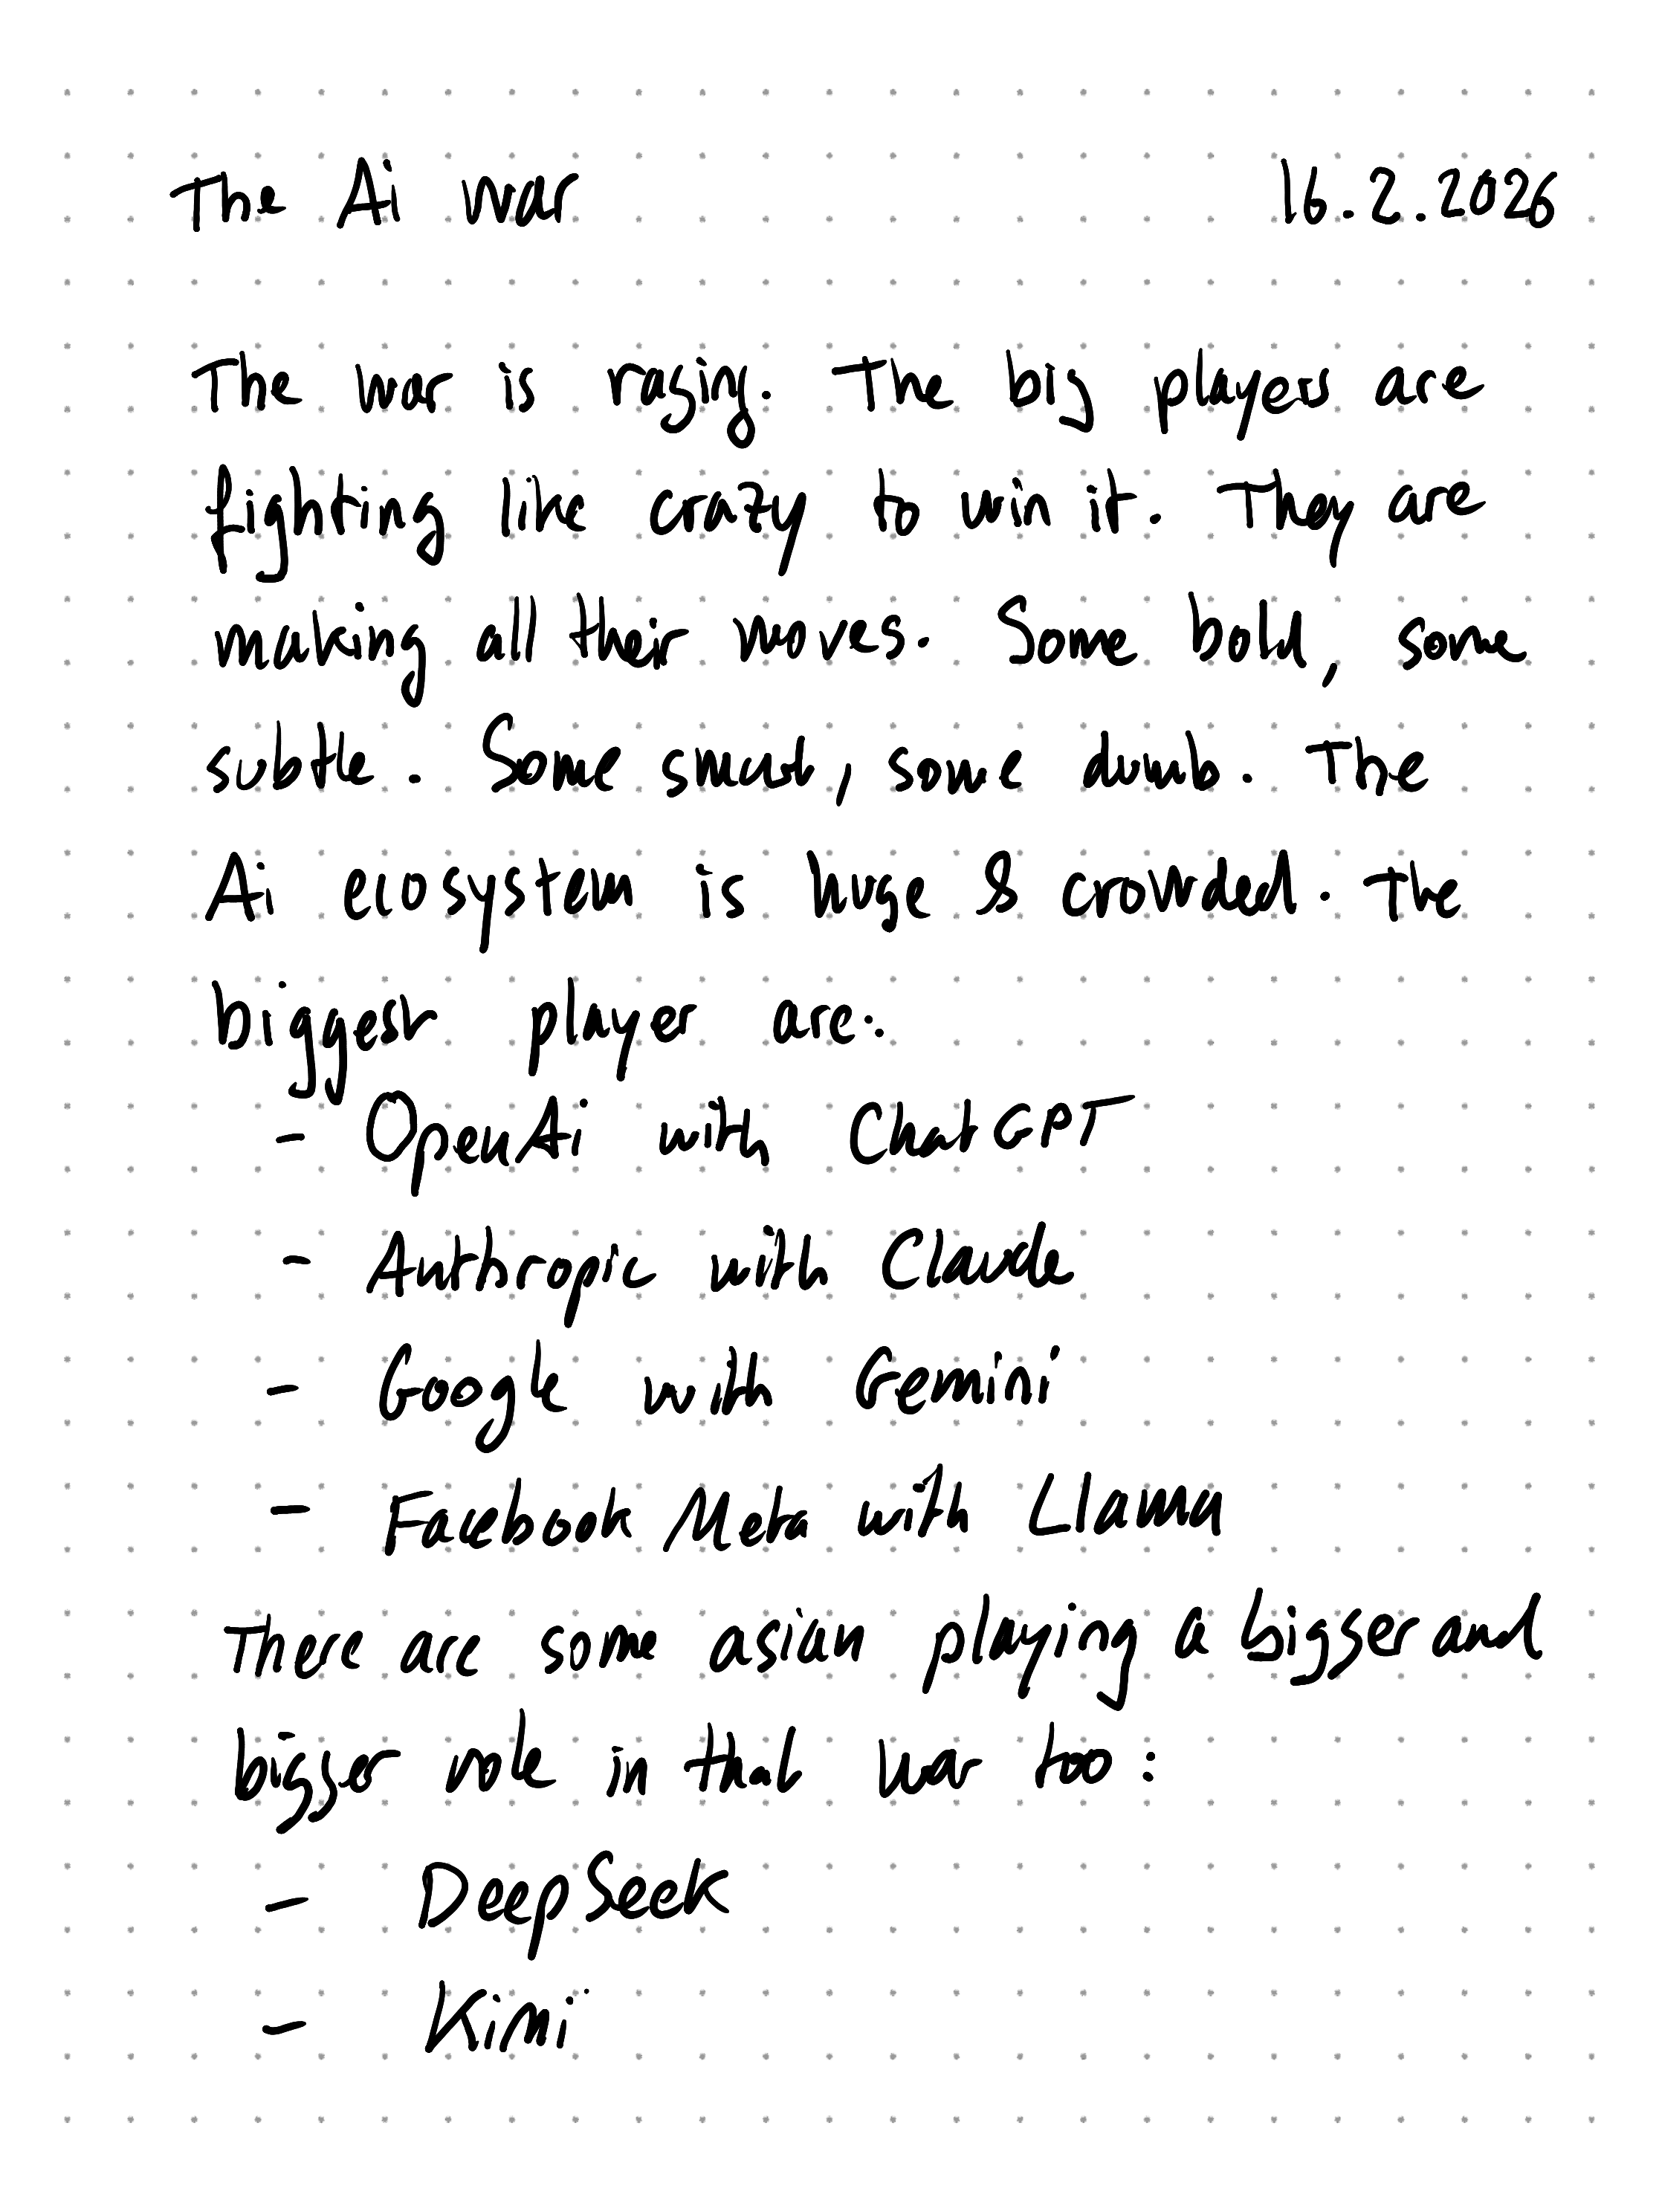 The Ai war 16.2.2026
The war is raging. The big players are
fighting like crazy to win it. They are
making all their moves. Some bold, some
subtle. Some smart, some dumb. The
Ai ecosystem is huge & crowded. The
biggest player are:
- OpenAi with ChatGPT
- Anthropic with Claude
- Google with Gemini
- Facebook Meta with Llama
There are some asian playing a bigger and
bigger role in that war too:
- DeepSeek
- Kimi